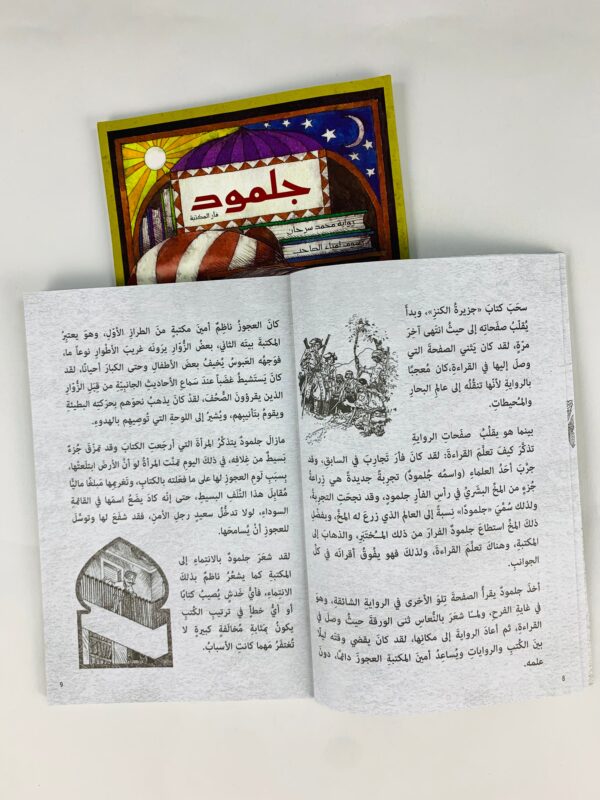 جلمود
فأر المكتبة
رواية محمد سرحان
رسوم لمياء الصاحب
سحَبَ كتابَ «جزيرةُ الكنزِ»، وبدأَ
يُقلّبُ صفَحاتِه إلى حيثُ انتَهى آخِرَ
مرّةٍ، لقد كان يَثني الصفحةَ التي
وصلَ إليها في القراءة،كان مُعجبًا
بالروايةِ لأنّها تنقُلُه إلى عالمِ البحارِ
والمُحيطاتِ.
بينما هو يقلّبُ صفَحاتِ الروايةِ
تذكّرَ كيفَ تعلّمَ القراءةَ: لقد كانَ فأرَ تجاربَ في السابق، وقد
جرّبَ أحَدُ العلماءِ (واسمُه جُلمود) تجرِبةً جديدةً هي زراعةُ
جُزءٍ من المخِّ البشَريّ في رأسِ الفأرِ جلمود، وقد نجحَت التجربةُ،
ولذلك سُمِّيَ «جلمودًا» نِسبةً إلى العالمِ الذي زرعَ له المخَّ، وبفضلِ
ذلكَ المخِّ استطاعَ جلمودٌ الفرارَ من ذلك المُختَبَرِ، والذهابَ إلى
المكتبةِ، وهناكَ تعلّمَ القراءةَ، ولذلكَ فهو يفُوقُ أقرانَه في كلِّ
الجوانبِ.
أخذَ جلمودٌ يقرأُ الصفحةَ تِلوَ الأخرى في الروايةِ الشائقةِ، وهو
في غايةِ الفرَحِ، ولمّا شعرَ بالنُّعاسِ ثنى الورقةَ حيثُ وصلَ في
القراءةِ، ثم أعادَ الروايةَ إلى مكانِها، لقد كانَ يقضي وقتَه ليلًا
بينَ الكُتبِ والرواياتِ ويُساعدُ أمينَ المكتبةِ العجوزَ دائمًا، دونَ
علمه.
8
كانَ العجوزُ ناظِمٌ أمينَ مكتبةٍ منَ الطرازِ الأوّلِ، وهوَ يعتبرُ
المكتبةَ بيتَه الثاني، بعضُ الزُّوّارِ يرَونَه غريبَ الأطوارِ نوعاً ما،
فوَجهُه العَبوسُ يُخيفُ بعضَ الأطفالِ وحتى الكبارَ أحيانًا، لقد
كانَ يَستَشيطُ غضَباً عندَ سَماعِ الأحاديثِ الجانبيّةِ من قِبَلِ الزوّارِ
الذين يقرؤونَ الصُّحُفَ، لقدْ كانَ يذهبُ نحوَهم بحرَكتِه البطيئةِ
ويقومُ بتأنيبِهم، ويُشيرُ إلى اللوحةِ التي تُوصِيهم بالهدوءِ.
مازالَ جلمودٌ يتذكّرُ المرأةَ التي أرجَعتِ الكتابَ وقد تمزّقَ جُزءٌ
بَسيطٌ من غِلافِه، في ذلكَ اليومِ تمنّت المرأةُ لو أنّ الأرضَ ابتلَعتْها،
بسببِ لومِ العجوزِ لها على ما فعَلته بالكتابِ، وتَغريمِها مَبلغًا ماليًّا
مُقابلَ هذا التلَفِ البسيطِ، حتى إنّه كادَ يضَعُ اسمَها في القائمةِ
السوداءِ، لولا تدخُّلُ سعيدٍ رجلِ الأمنِ، فقد شفَعَ لها وتوسَّلَ
للعجوزِ أنْ يُسامحَها.
لقد شعَرَ جلمودٌ بالانتماءِ إلى
المكتبةِ كما يشعُرُ ناظمٌ بذلكَ
الانتماءِ، فأيُّ خَدشٍ يُصيبُ كتابًا
أو أيُّ خطأٍ في ترتيبِ الكُتبِ
يكونُ بمَثابةِ مُخالَفةٍ كبيرةٍ لا
تُغتفَرُ مَهما كانتِ الأسبابُ.
9